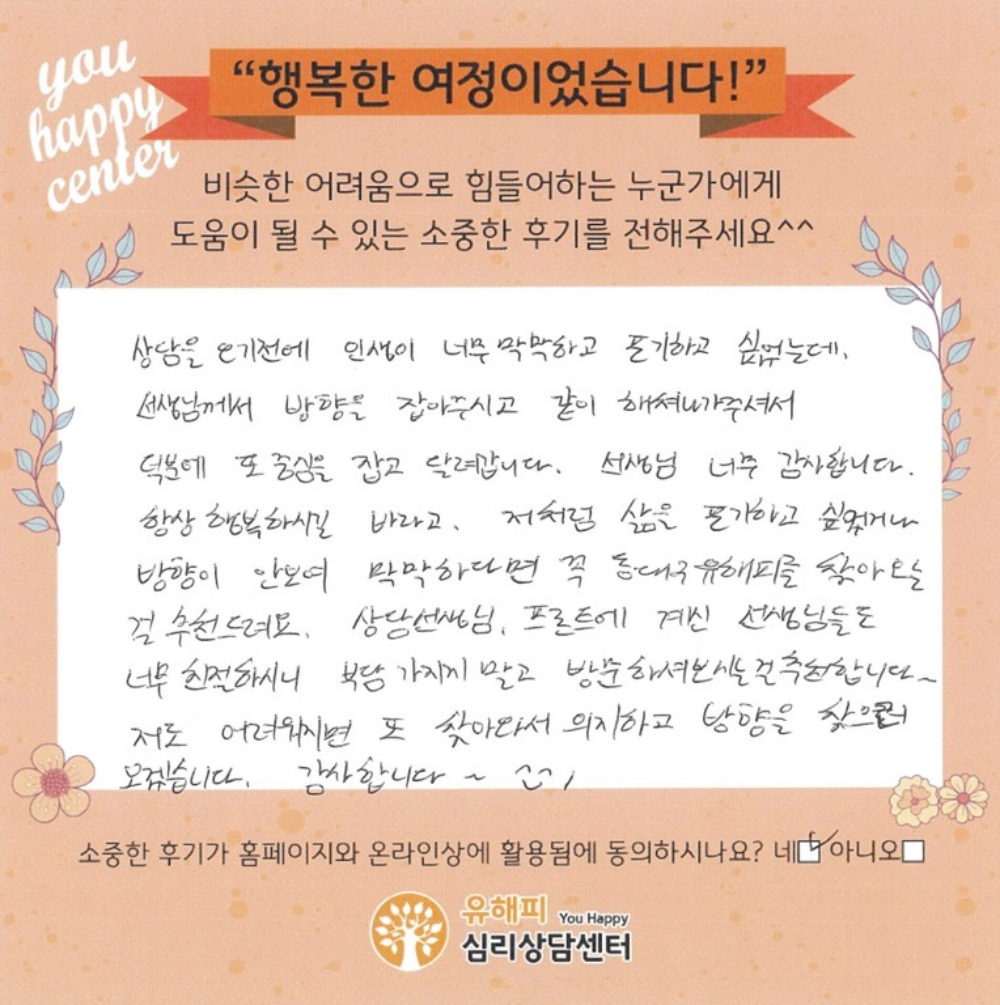 you
happy
center
“행복한 여정이었습니다!”
비슷한 어려움으로 힘들어하는 누군가에게
도움이 될 수 있는 소중한 후기를 전해주세요^^
상담을 오기전에 인생이 너무 막막하고 포기하고 싶었는데,
선생님께서 방향을 잡아주시고 같이 헤쳐나가주셔서
덕분에 또 중심을 잡고 달려갑니다. 선생님 너무 감사합니다.
항상 행복하시길 바라고, 저처럼 삶을 포기하고 싶었거나
방향이 안보여 막막하다면 꼭 동대구유해피를 찾아오는
걸 추천드려요. 상담선생님, 프론트에 계신 선생님들도
너무 친절하시니 부담 가지지 말고 방문하셔보시는걸 추천합니다~
저도 어려워지면 또 찾아와서 의지하고 방향을 찾으러
오겠습니다. 감사합니다 ~ ^^
소중한 후기가 홈페이지와 온라인상에 활용됨에 동의하시나요? 네☑ 아니오□
유해피 You Happy
심리상담센터